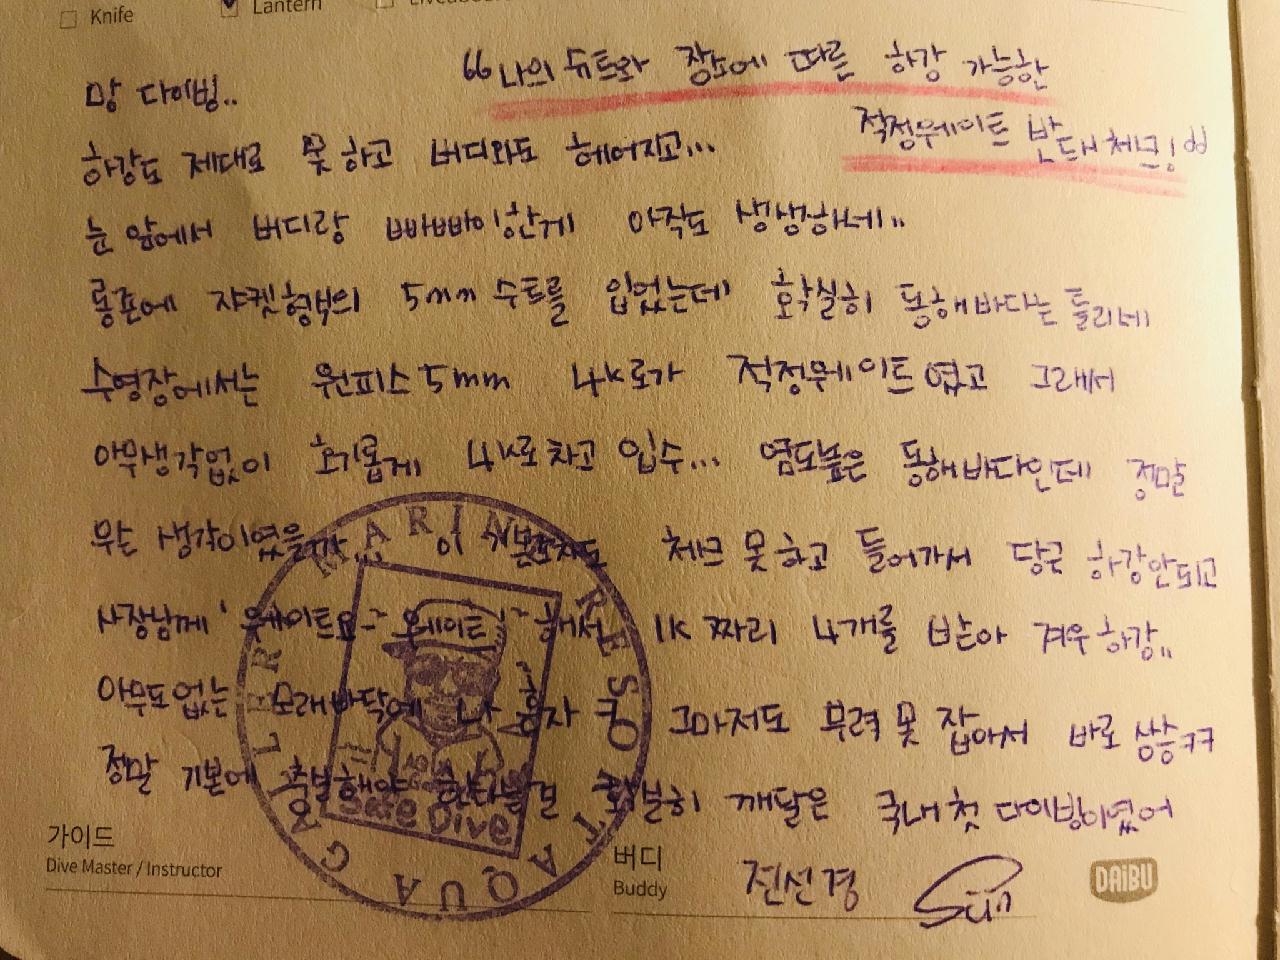 Knife
Lantern
망 다이빙..
“나의 슈트와 장소에 따른 하강 가능한
적정웨이트 반드시 체크!”
하강도 제대로 못하고 버디와도 헤어지고...
눈 앞에서 버디랑 빠빠이한게 아직도 생생하네..
롱존에 쟈켓형식의 5mm 수트를 입었는데 확실히 동해바다는 틀리네
수영장에서는 원피스 5mm 4K로가 적정웨이트였고 그래서
아무생각없이 호기롭게 4K로 차고 입수... 염도높은 동해바다인데 정말
무슨 생각이였을까.. 이 기본조차도 체크 못하고 들어가서 당근 하강안되고
사장님께 '웨이트요~ 웨이트!~ 해서 1K 짜리 4개를 받아 겨우하강..
아무도없는 모래바닥에 나 혼자 쿵 그마저도 부력 못 잡아서 바로 쌍승ㅋㅋ
정말 기본에 충실해야 한다는걸 확실히 깨달은 국내 첫 다이빙이였어
MARIN RESORT AQUAGORILLER
Safe Dive
가이드
Dive Master / Instructor
버디
Buddy
전선경
DAiBU